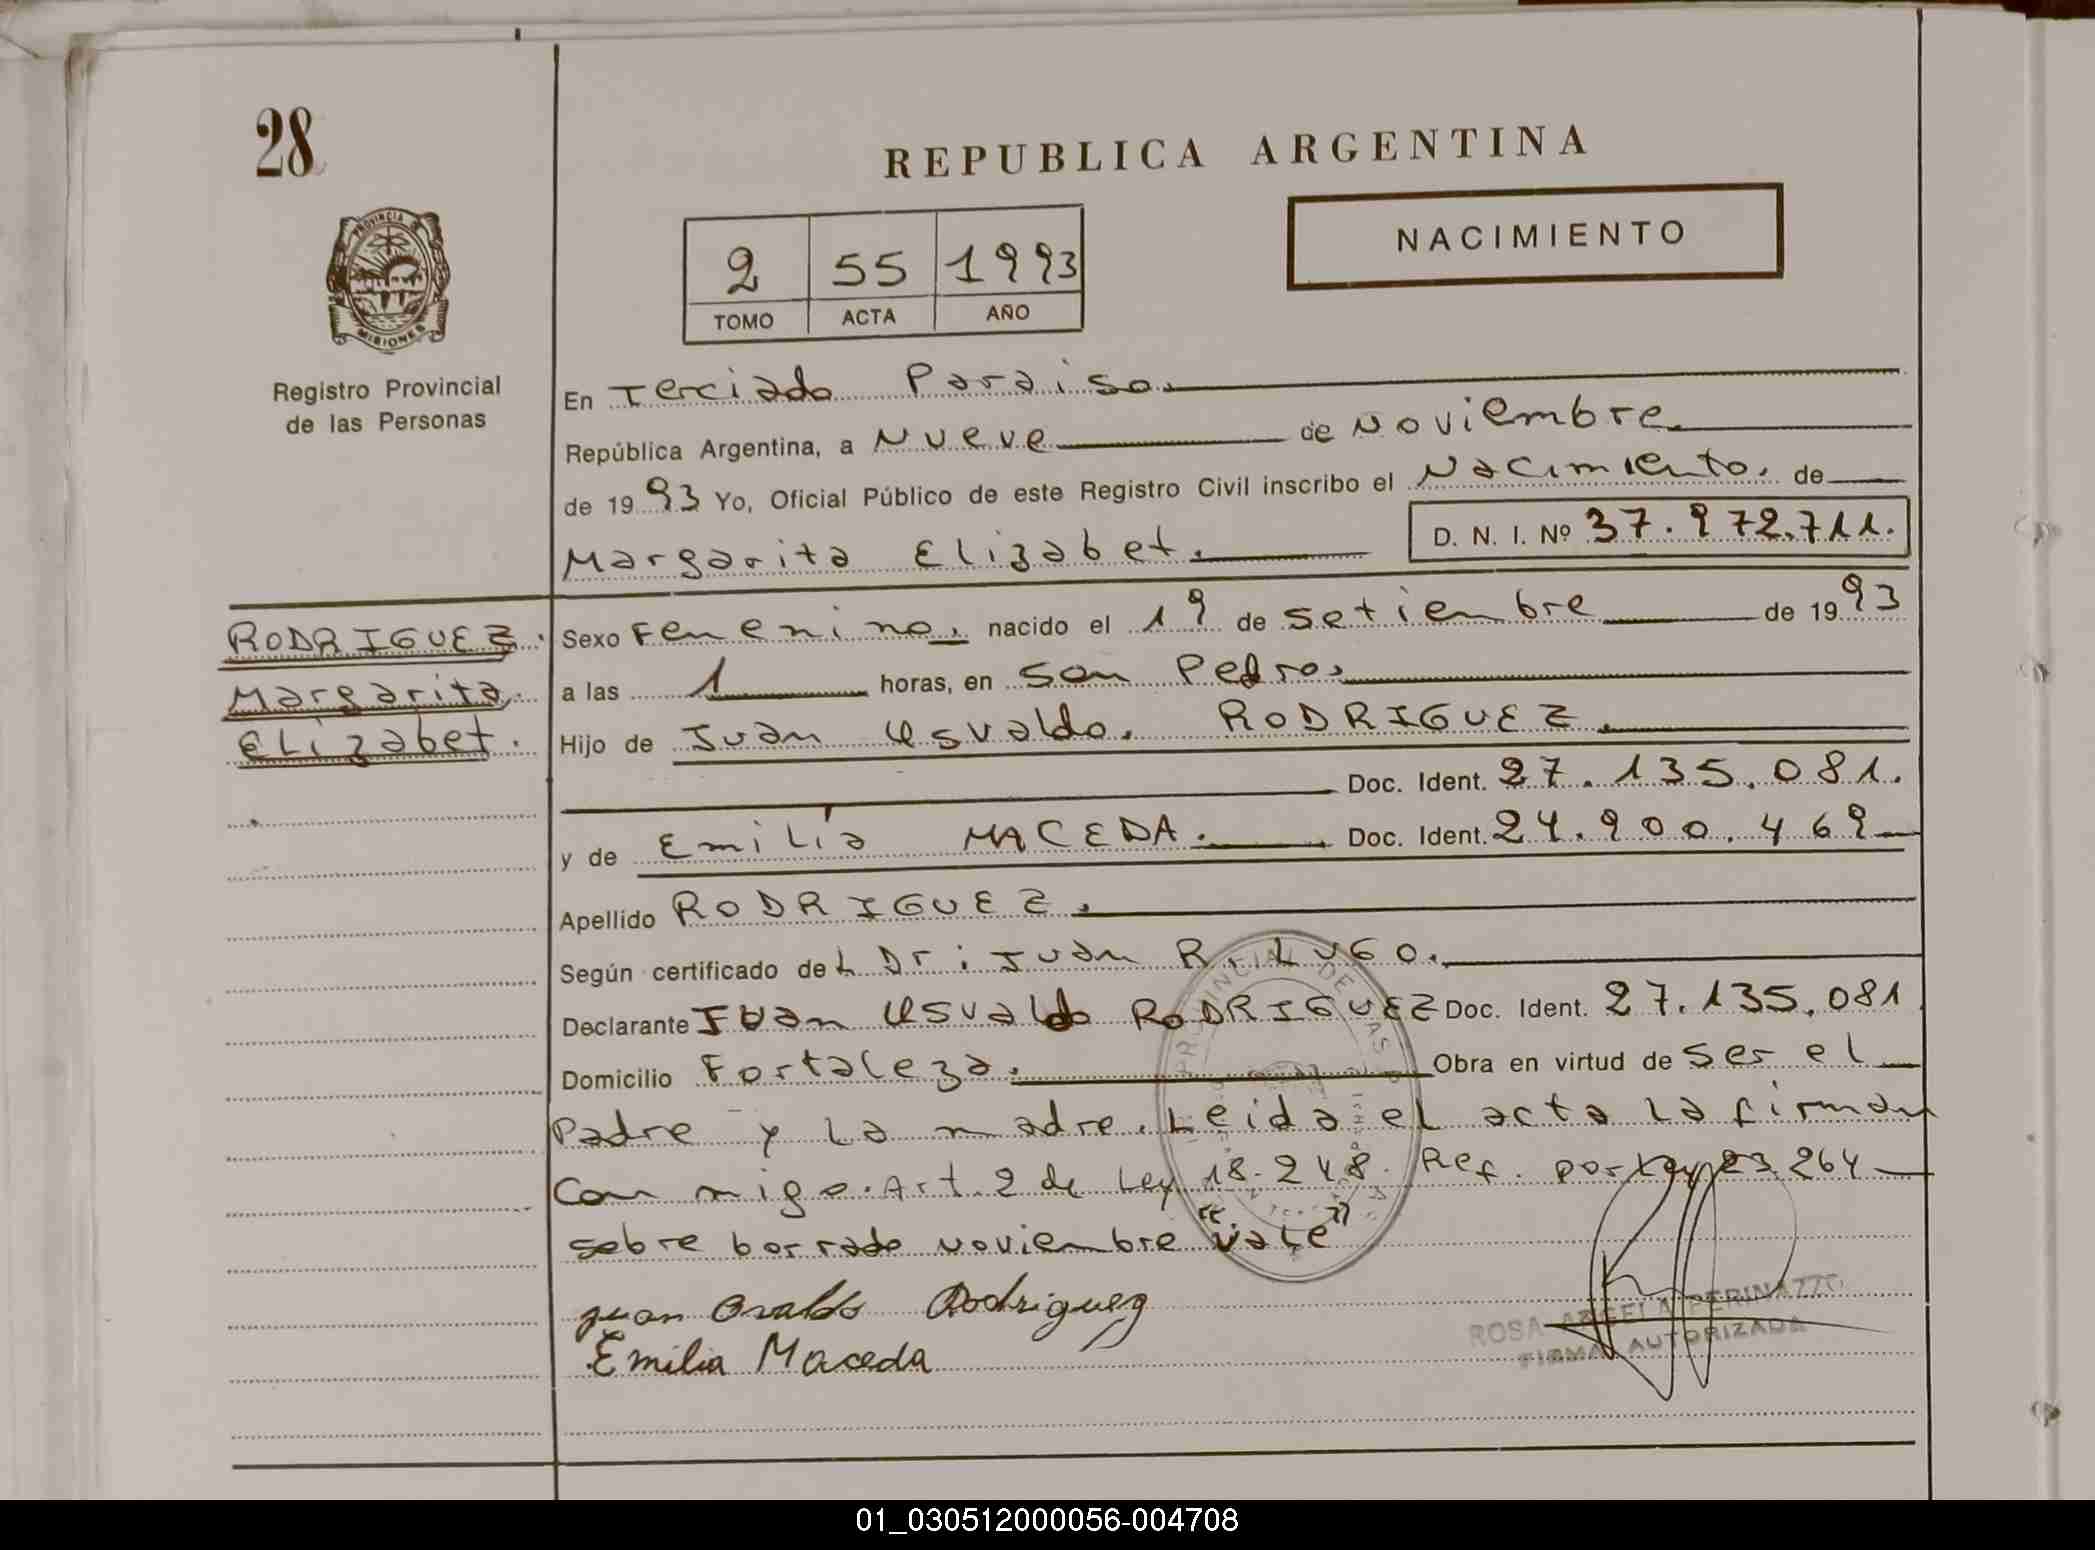 28
REPUBLICA ARGENTINA
NACIMIENTO
2 55 1993
TOMO ACTA AÑO
PROVINCIA DE
MISIONES
Registro Provincial
de las Personas
En Terciado Paraiso.
República Argentina, a Nueve de Noviembre
de 1993 Yo, Oficial Público de este Registro Civil inscribo el Nacimiento. de
Margarita Elizabet. D. N. I. Nº 37.972.711.
RODRIGUEZ.
Margarita
Elizabet.
Sexo Femenino. nacido el 19 de Setiembre de 1993
a las 1 horas, en San Pedro.
Hijo de Juan Usvaldo. RODRIGUEZ.
Doc. Ident. 27.135.081.
y de Emilia MACEDA. Doc. Ident. 24.900.469
Apellido RODRIGUEZ.
Según certificado del Dr: Juan R. LUGO.
Declarante Juan Usvaldo RODRIGUEZ Doc. Ident. 27.135.081
Domicilio Fortaleza. Obra en virtud de Ser el
Padre y La madre. Leida el acta La firman
Con migo. Art. 2 de Ley 18.248. Ref. por Ley 23.264
sobre borrado noviembre "vale"
Juan Osvaldo Rodriguez
Emilia Maceda
PROVINCIAL DE LAS
ROSA ANGELA PERINAZZO
FIRMA AUTORIZADA
01_030512000056-004708